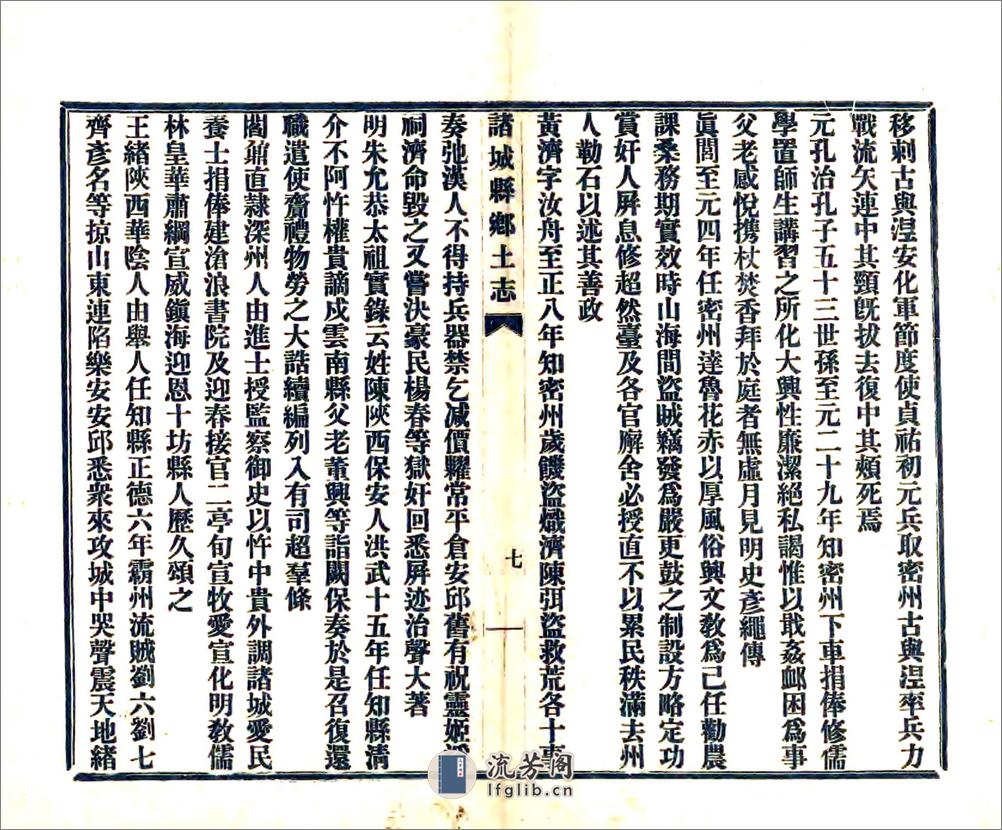 移剌古與涅安化軍節度使貞祐初元兵取密州古與涅率兵力
戰流矢連中其頸旣拔去復中其頰死焉
元孔治孔子五十三世孫至元二十九年知密州下車捐俸修儒
學置師生講習之所化大興性廉潔絕私謁惟以戢姦邮困爲事
父老感悅携杖焚香拜於庭者無虛月見明史彥繩傳
眞閭至元四年任密州達魯花赤以厚風俗興文敎爲己任勸農
課桑務期實效時山海間盜賊竊發爲嚴更鼓之制設方略定功
賞奸人屏息修超然臺及各官廨舍必授直不以累民秩滿去州
人勒石以述其善政
黃濟字汝舟至正八年知密州歲饑盜熾濟陳弭盜救荒各十事
諸城縣鄉土志
七
奏弛漢人不得持兵器禁乞減價糶常平倉安邱舊有祝靈姬
祠濟命毀之又嘗決豪民楊春等獄奸回悉屏迹治聲大著
明朱允恭太祖實錄云姓陳陝西保安人洪武十五年任知縣淸
介不阿忤權貴謫戍雲南縣父老董興等詣闕保奏於是召復還
職遣使齎禮物勞之大誥續編列入有司超羣條
閻鼐直隷深州人由進士授監察御史以忤中貴外調諸城愛民
養士捐俸建滄浪書院及迎春接官二亭旬宣牧愛宣化明敎儒
林皇華肅綱宣威鎭海迎恩十坊縣人歷久頌之
王緒陝西華陰人由舉人任知縣正德六年霸州流賊劉六劉七
齊彥名等掠山東連陷樂安安邱悉衆來攻城中哭聲震天地緒
流芳阁
lfglib.cn